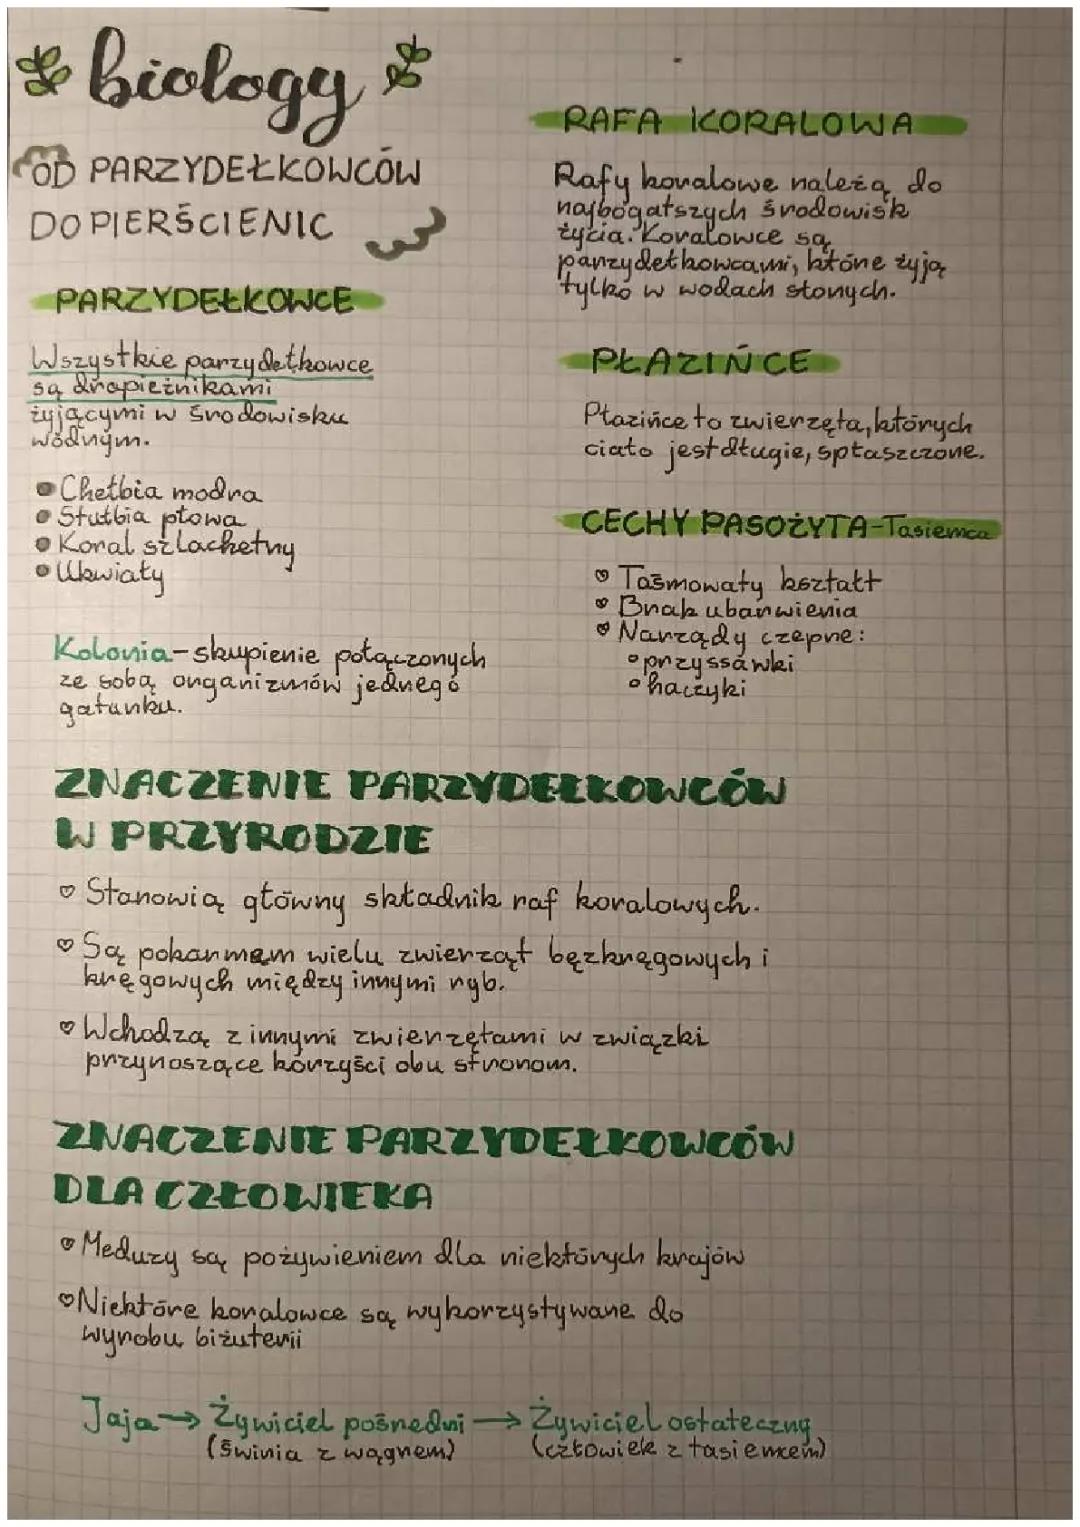 biology
OD PARZYDEŁKOWCÓW
DO PIERŚCIENIC
PARZYDEŁKOWCE
Wszystkie parzydełkowce
są drapieżnikami
żyjącymi w środowisku
wodnym.
Chełbia modra
Stułbia płowa
Koral szlachetny
Ukwiały
Kolonia-skupienie połączonych
ze sobą organizmów jednego
gatunku.
RAFA KORALOWA
Rafy koralowe należą do
najbogatszych środowisk
życia. Koralowce są
parzydełkowcami, które żyją
tylko w wodach słonych.
PŁAZIŃCE
Płazińce to zwierzęta, których
ciało jest długie, spłaszczone.
CECHY PASOŻYTA-Tasiemca
Taśmowaty kształt
Brak ubarwienia
Narządy czepne:
przyssawki
haczyki
ZNACZENIE PARZYDEŁKOWCÓW
W PRZYRODZIE
Stanowią główny składnik raf koralowych.
Są pokarmem wielu zwierząt bezkręgowych i
kręgowych między innymi ryb.
Wchodzą z innymi zwierzętami w związki
przynoszące korzyści obu stronom.
ZNACZENIE PARZYDEŁKOWCÓW
DLA CZŁOWIEKA
Meduzy są pożywieniem dla niektórych krajów
Niektóre koralowce są wykorzystywane do
wyrobu biżuterii
Jaja → Żywiciel pośredni → Żywiciel ostateczny
(świnia z wągrem) (człowiek z tasiemcem)